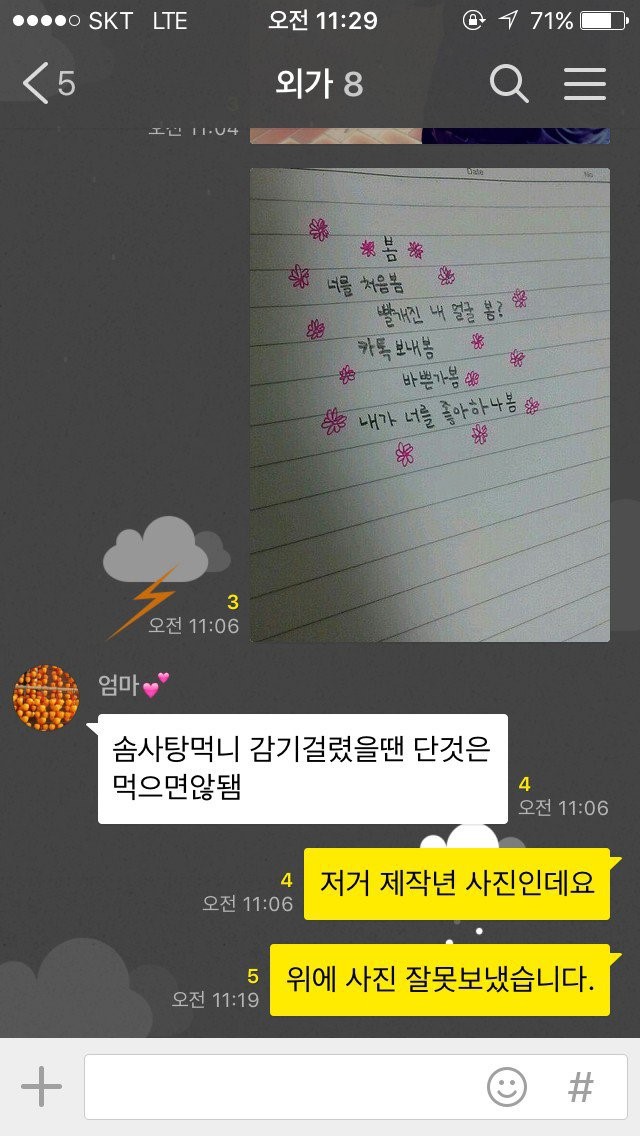 SKT LTE 오전 11:29 71%
5 외가 8
오전 11:04
Date No
봄
너를 처음봄
빨개진 내 얼굴 봄?
카톡보내봄
바쁜가봄
내가 너를 좋아하나봄
3
오전 11:06
엄마💕
솜사탕먹니 감기걸렸을땐 단것은
먹으면않됌
4
오전 11:06
저거 제작년 사진인데요
4
오전 11:06
위에 사진 잘못보냈습니다.
5
오전 11:19
#